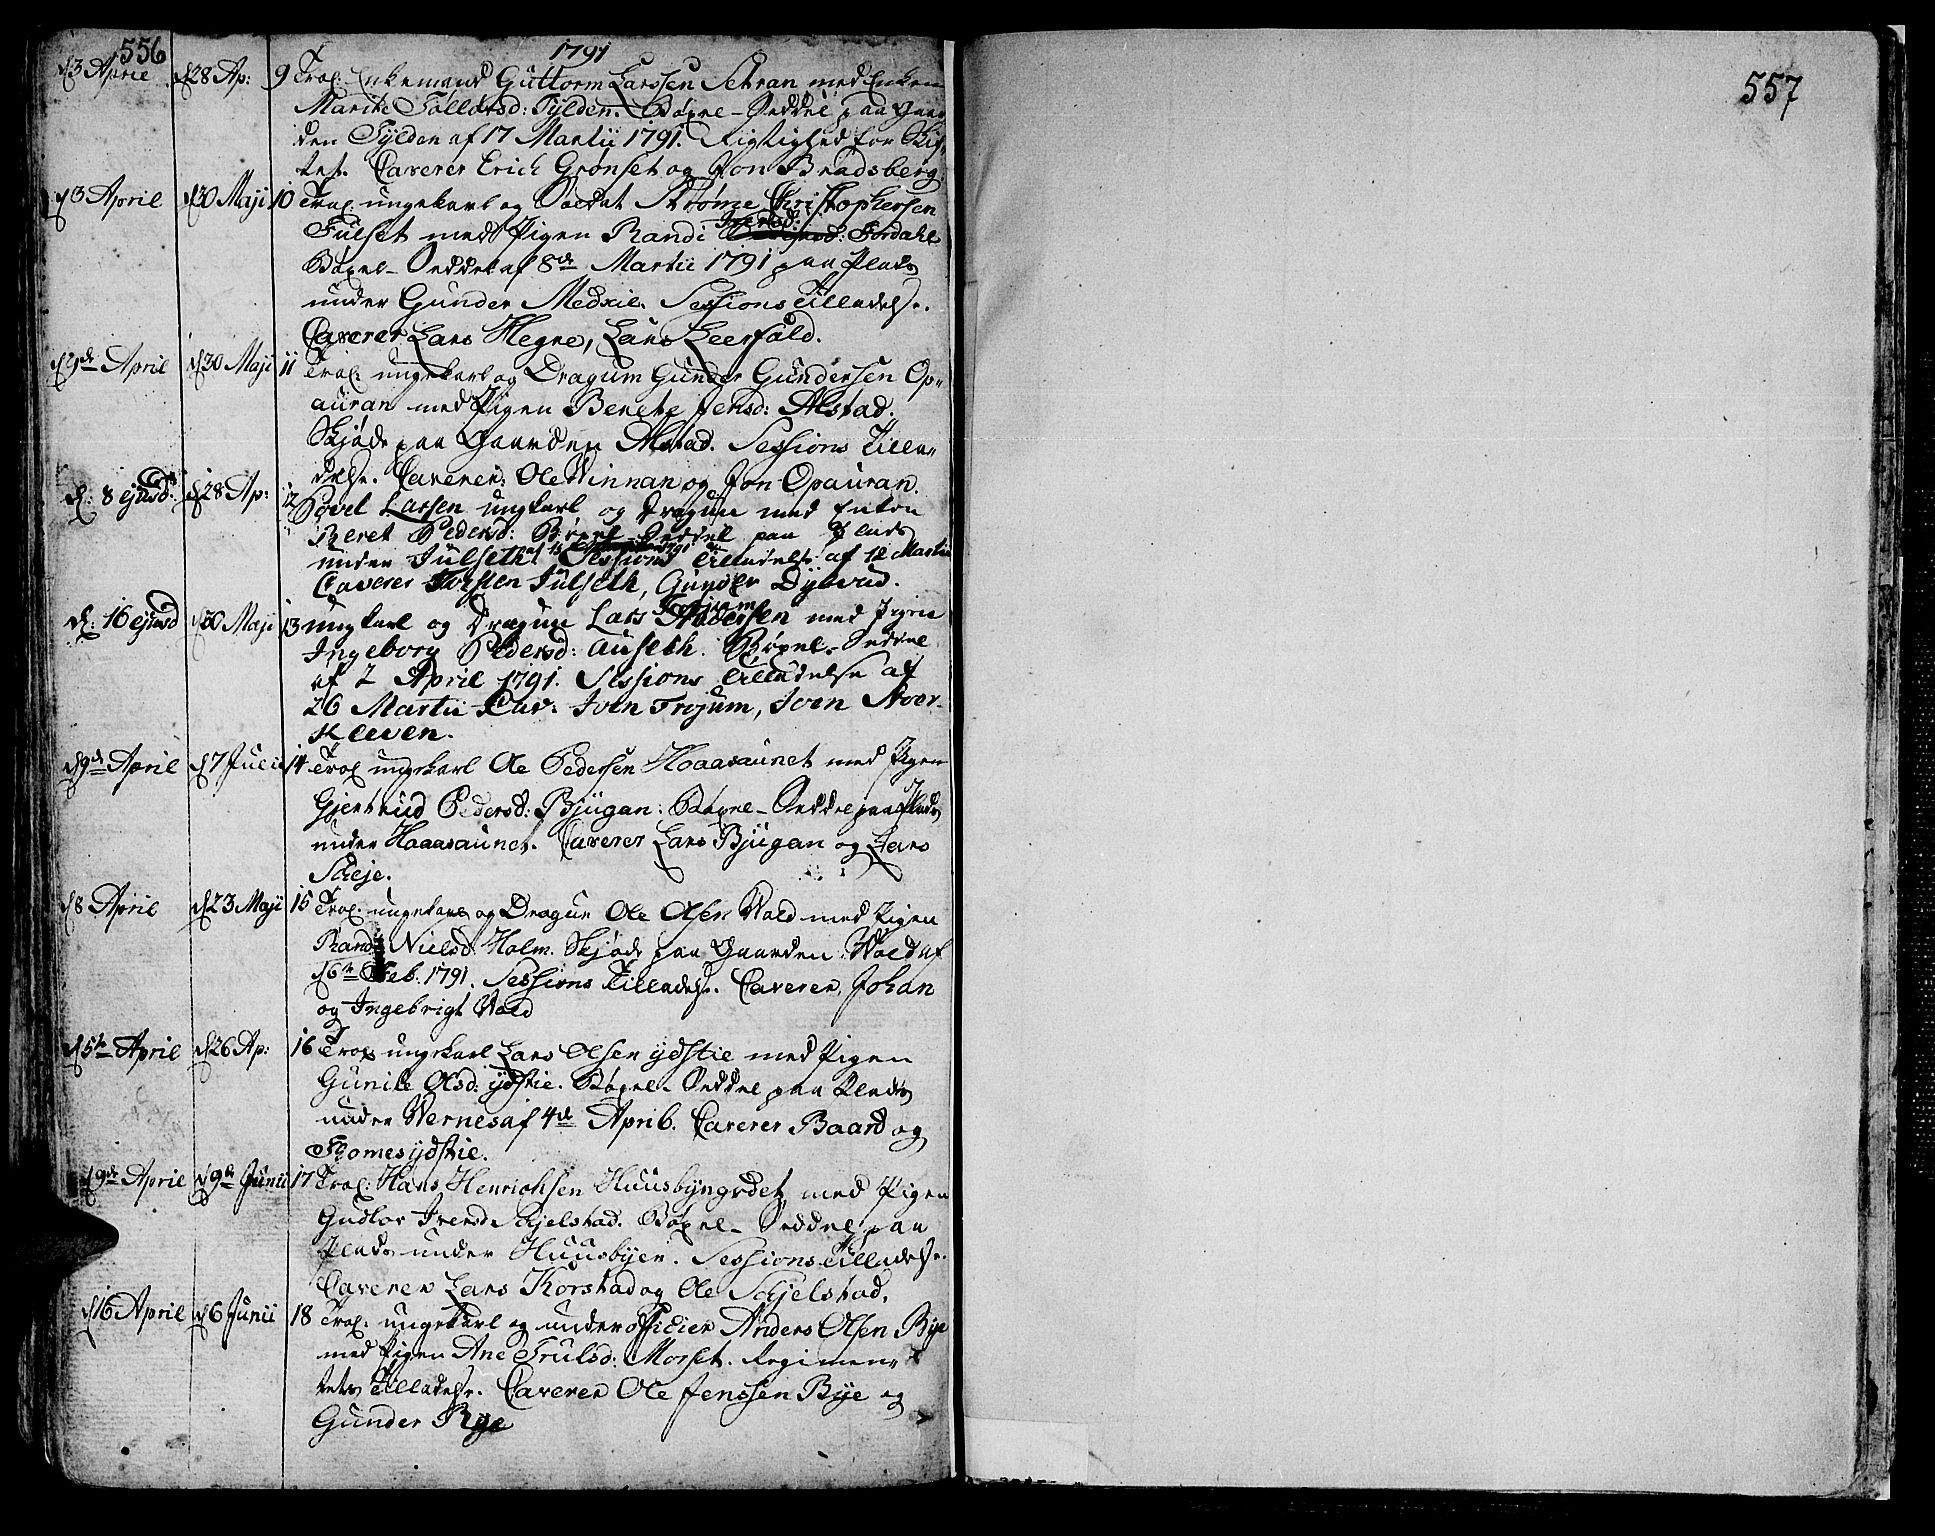 556
1791
d 3 April d 28 Ap: 9 Trol. Enkemand Guttorm Larssen Setran med Enken
Marite Tollørsd: Tylden. Bøxel-Seddel paa Gaar
den Tylden af 17 Martii 1791. Rigtighed for Skif
tet. Caverer Erich Grønset og Jon Bradsberg
d 3 April d 30 Maji 10 Trol. ungekarl og Soldat Strøme Christophersen
Fulset med Pigen Randi Iversd: Fordahl
Bøxel-Seddel af 8de Martii 1791 paa Plads
under Gunder Medxie. Sessions Tilladelse.
Caverer Lars Hegre, Lars Leerfald.
d 9de April d 30 Maji 11 Trol. ungekarl og Dragun Gunder Gundersen Op-
auran med Pigen Berete Jensd: Alstad.
Skjøde paa Gaarden Alstad. Sessions Tilla-
delse. Caverer: Ole Winnan og Jon Opauran.
d: 8 ejusd: d 28 Ap: 12 Povel Larsen ungkarl og Dragun med Enken
Beret Pedersd: Bøxel Seddel paa Plads
under Julseth Sessions Tilladelse af 12 Martii
Caverer Torsten Julseth, Gunder Dybvad.
d: 16 ejusd d 30 Maji 13 ungkarl og Dragun Lars Andersen Trøjum med Pigen
Ingeborg Pedersd: Auseth. Bøxel-Seddel
af 2 April 1791. Sessions Tilladelse af
26 Martii Cav: Joen Trøjum, Joen Stoer-
kleven.
d 9de April d 7 Julii 14 Trol. ungekarl Ole Pedersen Haasaunet med Pigen
Gjertrud Pedersd: Bjugan: Bøxel-Seddel paa Plads
under Haasaunet. Caverer Lars Bjugan og Lars
Scheje.
d 8 April d 23 Maji 15 Trol. ungekarl og Dragun Ole Olsen Wold med Pigen
Randi Nielsd: Holm. Skjøde paa Gaarden Wold af
d 6te Feb. 1791. Sessions Tilladelse. Caverer, Johan
og Ingebrigt Wold
d 5te April d 26 Ap: 16 Trol. ungekarl Lars Olsen ydstie med Pigen
Gunile Olsd: ydstie. Bøxel-Seddel paa Plads
under Wernes af 4de April. Caverer Baard og
Thomes ydstie.
d 19de April d 9de Junii 17 Trol: Hans Henrichsen Huusbyngrdet med Pigen
Gudlov Iversd: Schjelstad. Bøxel-Seddel paa
Plads under Huusbyen. Sessions Tilladelse.
Caverer Lars Korstad og Ole Schjelstad.
d 16 April d 6 Junii 18 Trol: ungekarl og underofficier Anders Olsen Bye
med Pigen Ane Trulsd: Morset. Regimen-
tets Tilladelse. Caverer Ole Jenssen Bye og
Gunder Rye
557